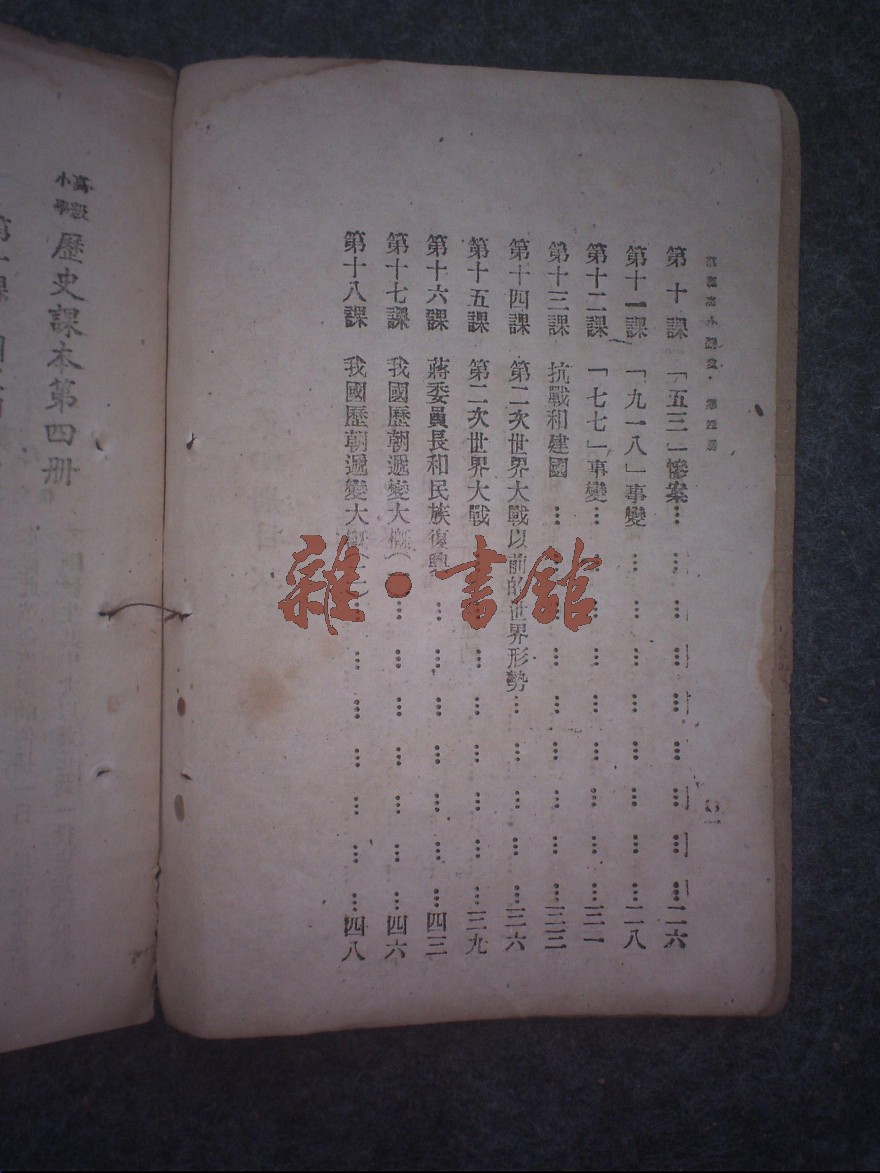 第十課 「五三」慘案………………………二六
第十一課 「九一八」事變………………………二八
第十二課 「七七」事變………………………三一
第十三課 抗戰和建國………………………三三
第十四課 第二次世界大戰以前的世界形勢………………三六
第十五課 第二次世界大戰………………………三九
第十六課 蔣委員長和民族復興………………………四三
第十七課 我國歷朝遞變大概(………………………四六
第十八課 我國歷朝遞變大概(二………………………四八
高級小學
歷史課本第四冊
雜·書館